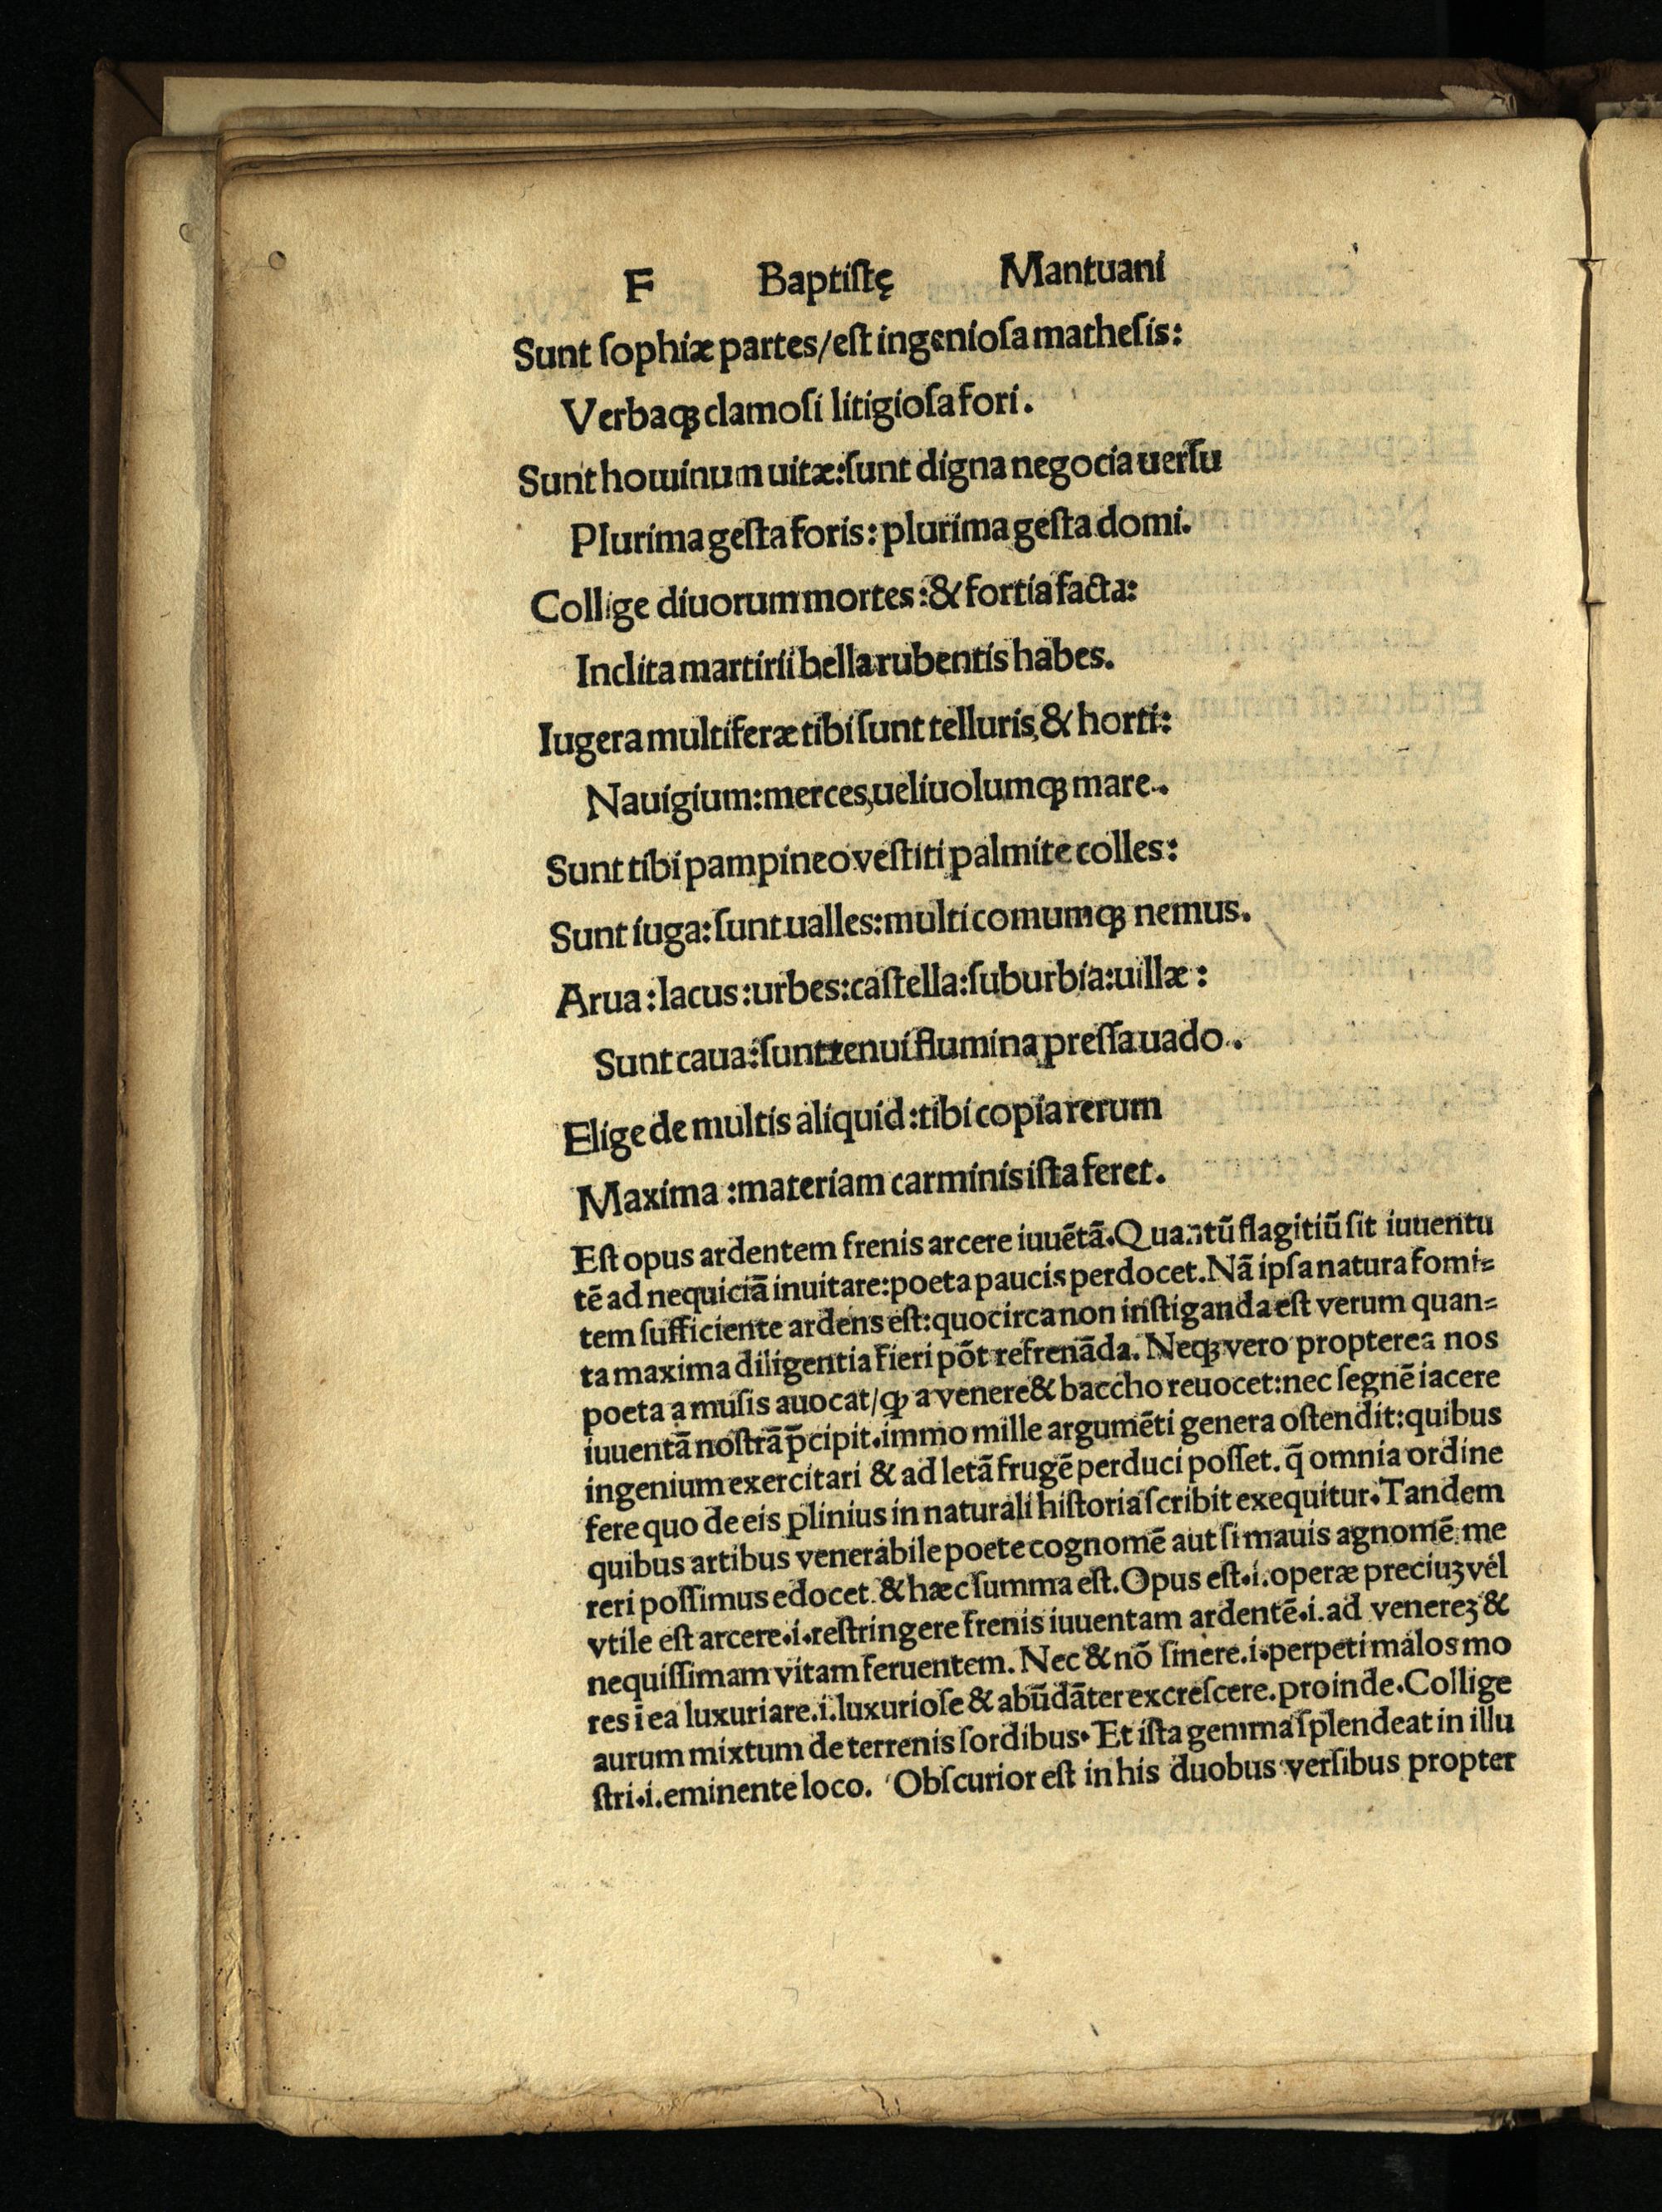 F Baptiſtę Mantuani
Sunt ſophiæ partes/eſt ingenioſa matheſis:
Verbaqꝫ clamoſi litigioſa fori.
Sunt hominum uitæ:ſunt digna negocia uerſu
Plurima geſta foris: plurima geſta domi.
Collige diuorum mortes :& fortia facta:
Inclita martirii bella rubentis habes.
Iugera multiferæ tibi ſunt telluris,& horti:
Nauigium:merces,ueliuolumqꝫ mare.
Sunt tibi pampineo veſtiti palmite colles:
Sunt iuga:ſunt ualles:multi comumqꝫ nemus.
Arua :lacus :urbes:caſtella:ſuburbia:uillæ :
Sunt caua:ſunt tenui flumina preſſa uado .
Elige de multis aliquid :tibi copia rerum
Maxima :materiam carminis iſta feret.
Eſt opus ardentem frenis arcere iuuẽtã.Quantũ flagitiũ ſit iuuentu
tẽ ad nequiciã inuitare:poeta paucis perdocet.Nã ipſa natura fomi⸗
tem ſufficiente ardens eſt:quocirca non inſtiganda eſt verum quan⸗
ta maxima diligentia fieri põt refrenãda. Neqꝫ vero propterea nos
poeta a muſis auocat/ꝙ a venere & baccho reuocet:nec ſegnẽ iacere
iuuentã noſtrã p̃cipit.immo mille argumẽti genera oſtendit:quibus
ingenium exercitari & ad letã frugẽ perduci poſſet. q̃ omnia ordine
fere quo de eis plinius in naturali hiſtoria ſcribit exequitur.Tandem
quibus artibus venerabile poete cognomẽ aut ſi mauis agnomẽ me
reri poſſimus edocet & hæc ſumma eſt.Opus eſt.i.operæ preciuꝫ vel
vtile eſt arcere.i.reſtringere frenis iuuentam ardentẽ.i.ad venereꝫ &
nequiſſimam vitam feruentem. Nec & nõ ſinere.i.perpeti malos mo
res ĩ ea luxuriare.i.luxurioſe & abũdãter excreſcere.proinde.Collige
aurum mixtum de terrenis ſordibus. Et iſta gemma ſplendeat in illu
ſtri.i.eminente loco. Obſcurior eſt in his duobus verſibus propter